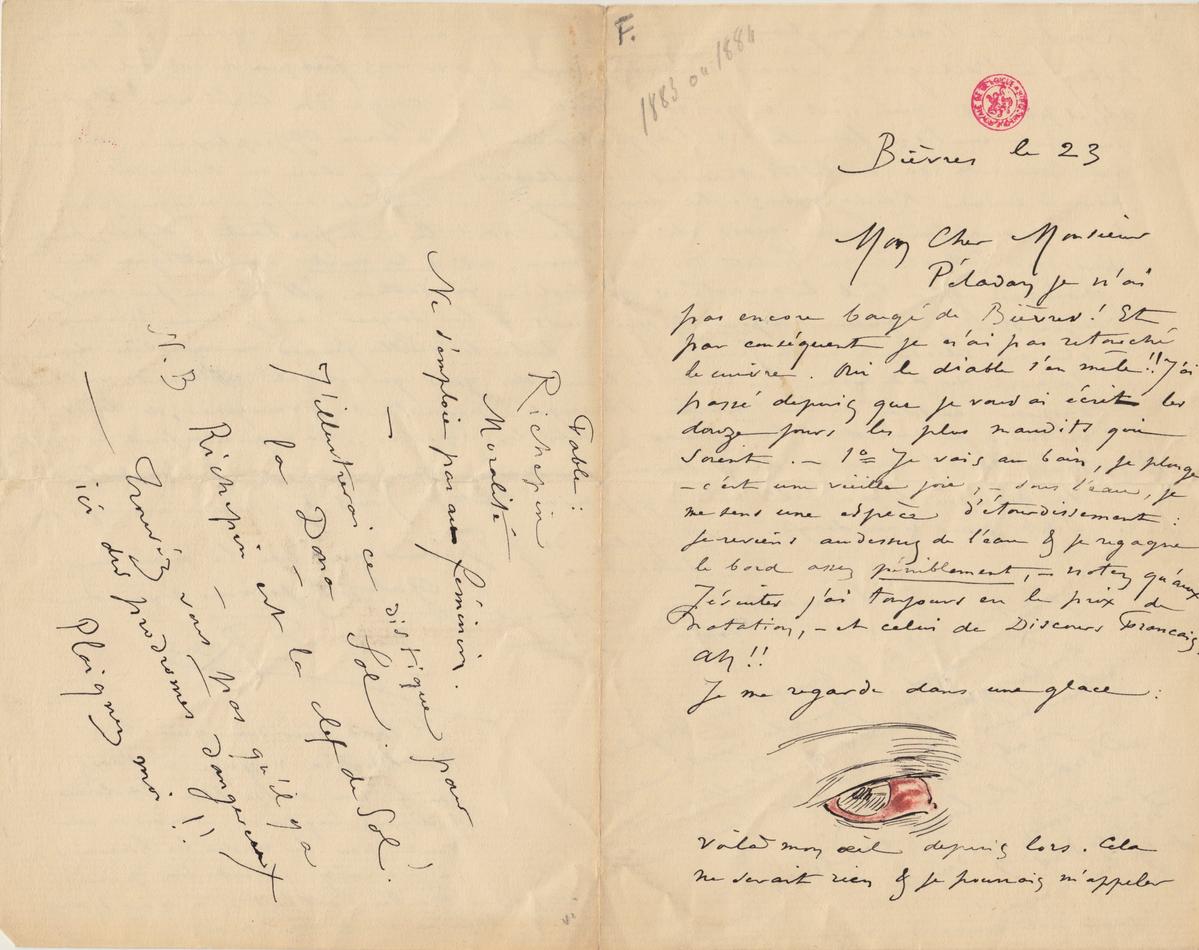 F.
1883 ou 1884
Bièvres le 23
Mon Cher Monsieur
Péladan je n'ai
pas encore bougé de Bièvres! Et
par conséquent je n'ai pas retouché
le cuivre. Oui le diable s'en mêle!! J'ai
passé depuis que je vous ai écrit les
douze jours les plus maudits qui
soient. — 1º Je vais au bain, je plonge
— c'est une vieille joie, — sous l'eau, je
me sens une espèce d'étourdissement:
je reviens au dessus de l'eau & je regagne
le bord assez péniblement, — notez qu'aux
Jésuites j'ai toujours eu le prix de
Natation, — et celui de Discours Français,
Ah!!
Je me regarde dans une glace:
voilà mon œil depuis lors. Cela
ne serait rien & je pourrais m'appeler
Fable:
Richepin
Moralité
Ne s'emploie pas au féminin.
—
J'illustrerai ce distique pour
la Dona Sol.
Richepin est la clef de Sol!
N.B — Trouvez vous pas qu'il y a
ici des prodromes dangereux
Plaignez moi!!